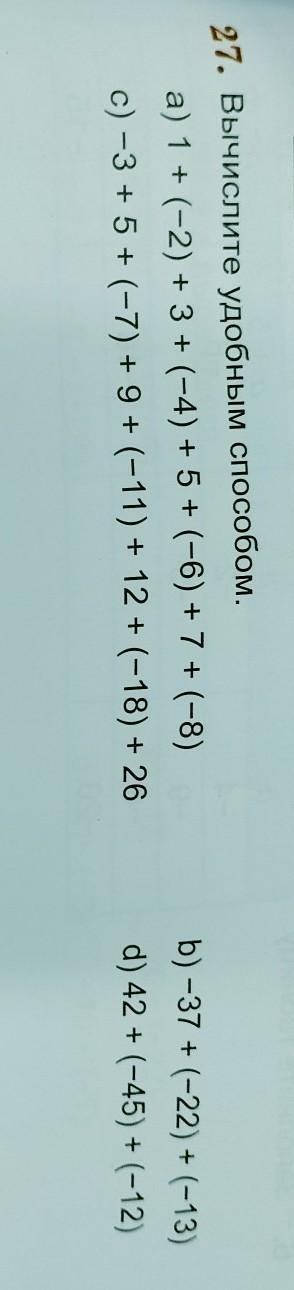 27. Вычислите удобным способом.
a) 1 + (−2) + 3 + (−4) + 5 + (−6) + 7 + (−8) b) −37 + (−22) + (−13)
c) −3 + 5 + (−7) + 9 + (−11) + 12 + (−18) + 26 d) 42 + (−45) + (−12)